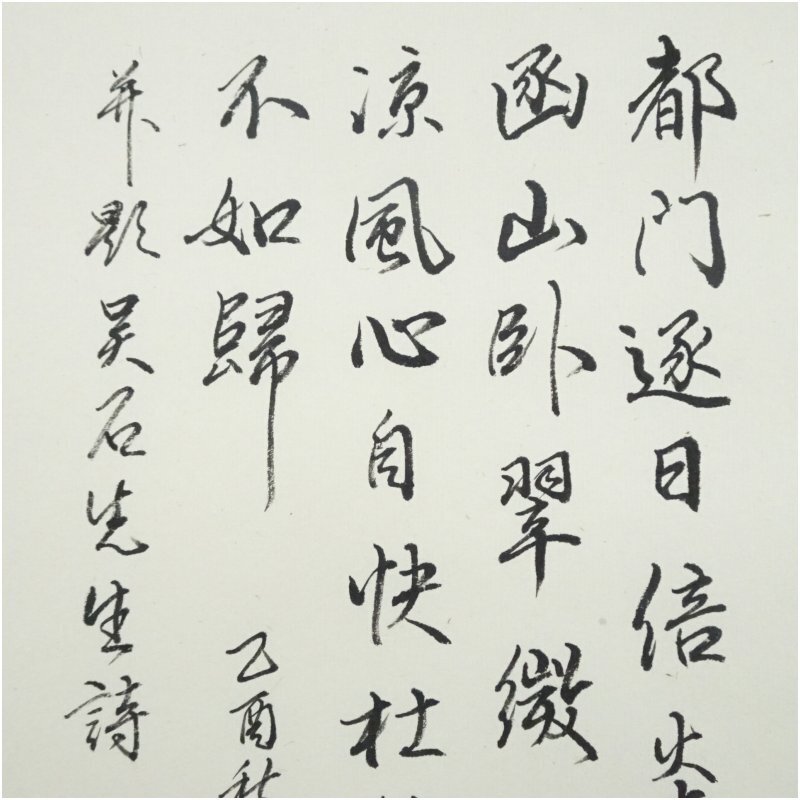 都门逐日倍炎
函山卧翠微
凉風心自快杜
不如歸
乙酉秋
并題吴石先生詩